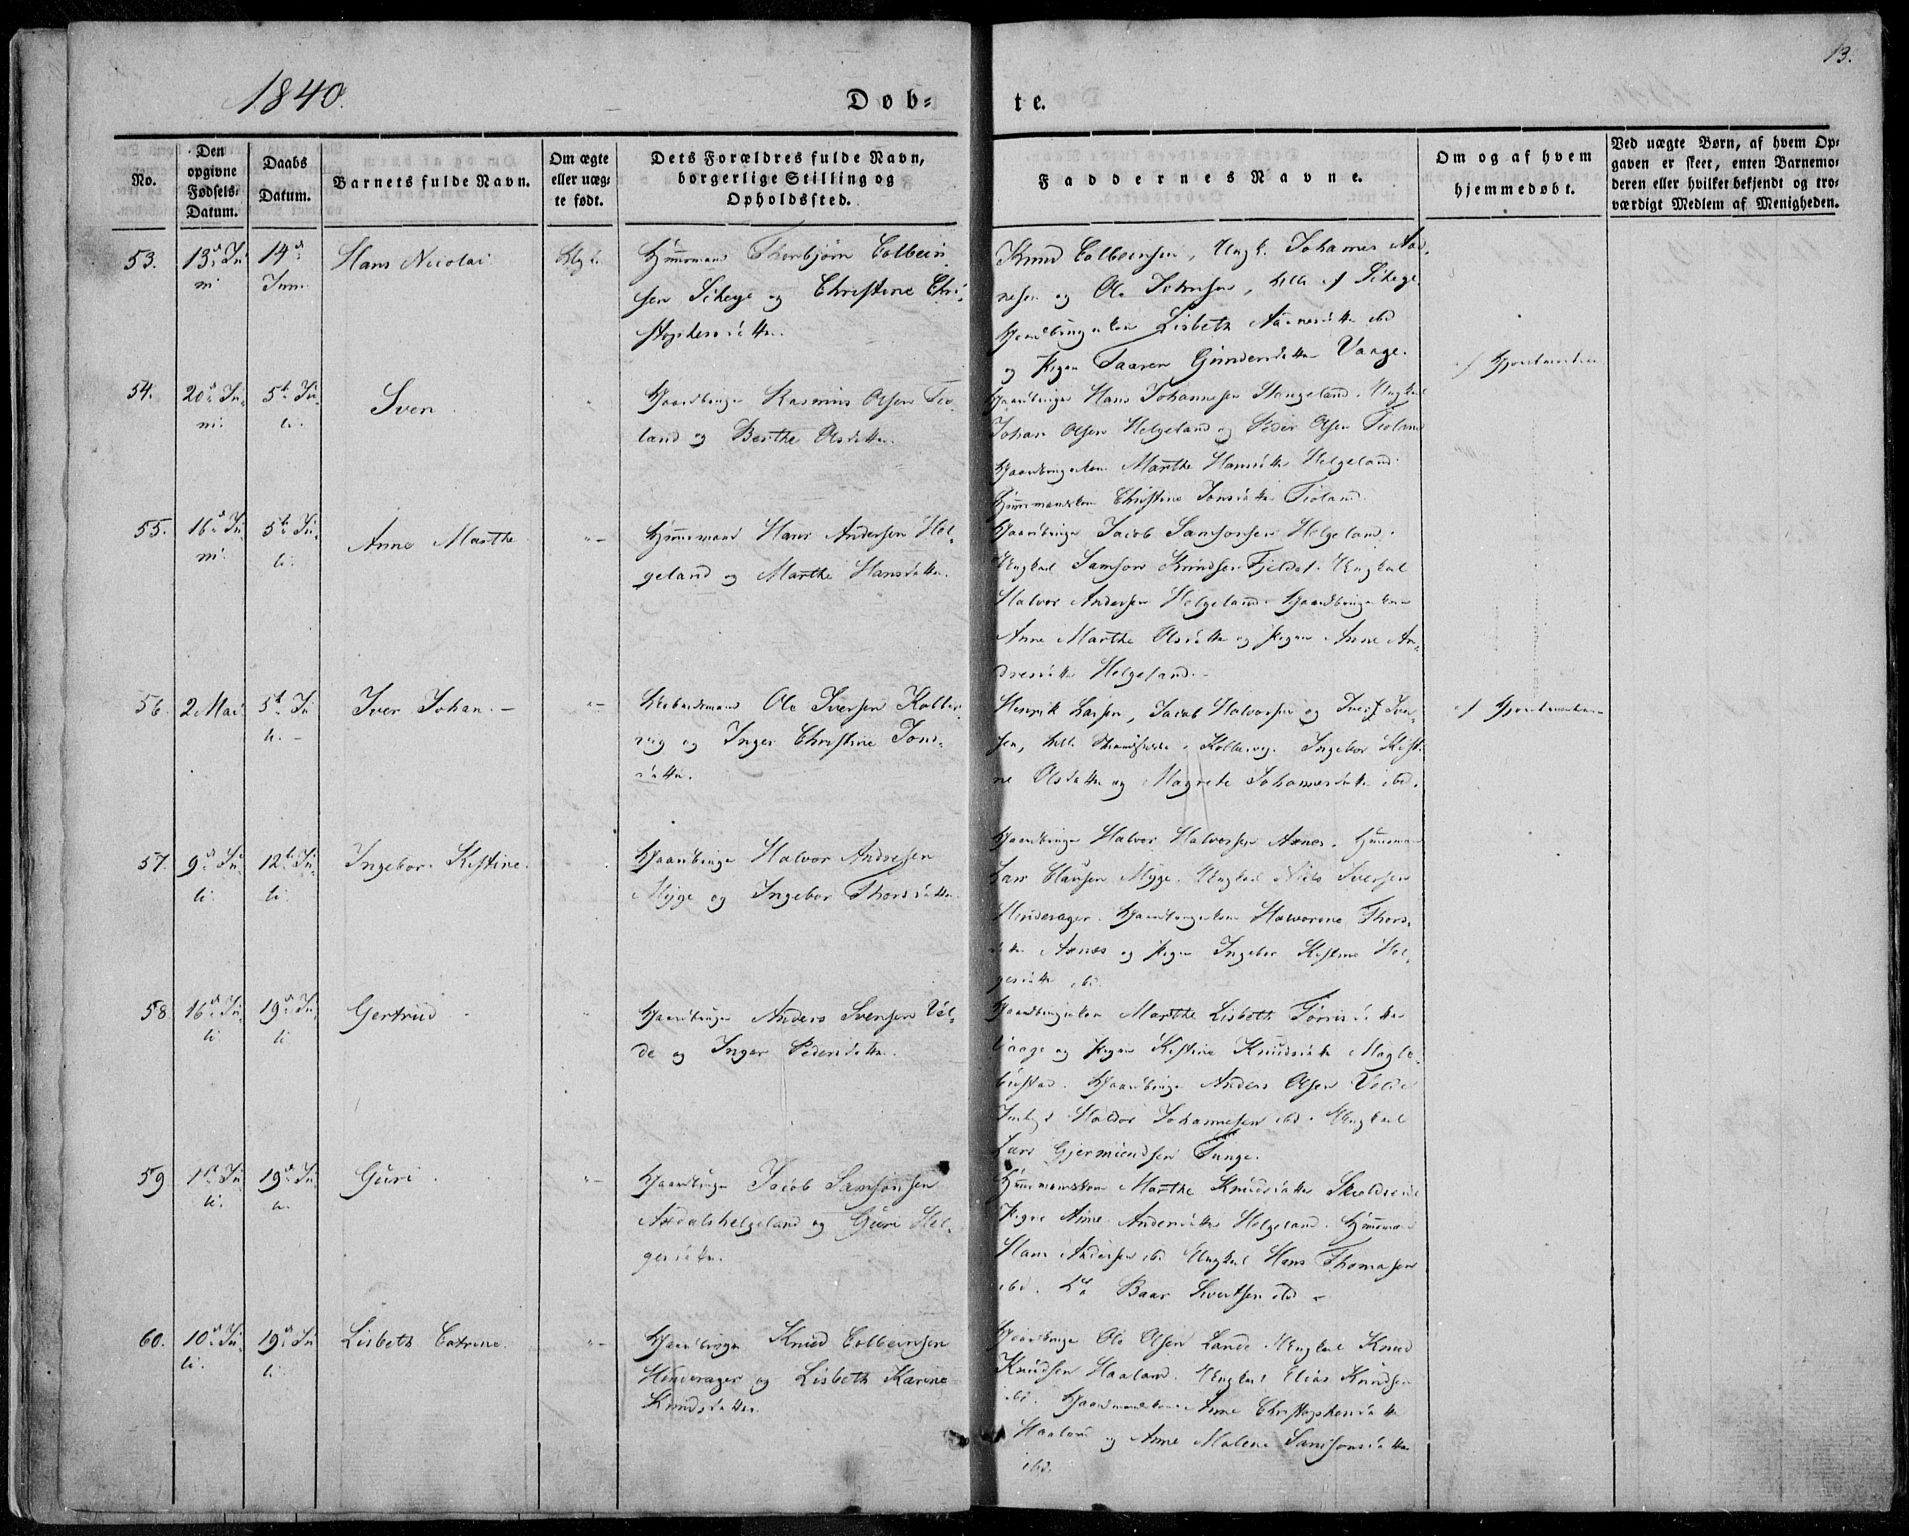 1840.
13.
Døb-
te.
No.
Den
opgivne
Fødsels-
Datum.
Daabs
Datum.
Barnets fulde Navn.
Om ægte
eller uæg-
te født.
Dets Forældres fulde Navn,
borgerlige Stilling og
Opholdssted.
Faddernes Navne.
Om og af hvem
hjemmedøbt.
Ved uægte Børn, af hvem Op-
gaven er skeet, enten Barnemo-
deren eller hvilket bekjendt og tro-
værdigt Medlem af Menigheden.
53.
13d Ju-
ni
14d
Juni
Hans Nicolai
Huusmand Thorbjørn Colbein-
sen Sikege og Christine Chri-
stophersdatter.
Knud Colbeinsen, Ungk. Johannes Aa-
nesen og Ole Johnsen, alle af Sikege
Lisbeth Aanesdatter ibd
og Pigen Taaren Gundersdatter Vaage.
af Gjordmoderen
54.
20d Ju-
ni.
5te Ju-
li.
Sven.
Gaardbruger Rasmus Olsen Fio-
land og Berthe Olsdatter.
Gaardbruger Hans Johannesen Haugeland. Ungkarl
Johan Olsen Helgeland og Peder Olsen Fioland
Gaardbrugerkone Marthe Hansdatter Helgeland.
Huusmandskone Christine Jonsdatter Fioland.
55.
16d Ju-
ni.
5te Ju-
li.
Anne Marthe
"-
Huusmand Hans Andersen Hel-
geland og Marthe Hansdatter.
Gaardbruger Jacob Samsonsen Helgeland.
Ungkarl Samson Knudsen Fjeldet. Ungkarl
Halvor Andersen Helgeland. Gaardbrugerkone
Anne Marthe Olsdatter og Pigen Anne An-
dersdatter Helgeland.
56.
2 Mai
5te Ju-
li. -
Iver Johan. -
"-
Ole Iversen Kolber-
vig og Inger Christine Jons-
datter.
Henrik Larsen, Jacob Halvorsen og Iver Iver-
sen, alle Kolbervig. Ingebor Kisti-
ne Olsdatter og Magrete Johannesdatter ibd.
af Gjordmoderen
57.
9d Ju-
li.
12te Ju-
li.
Ingebor. Kistine.
Gaardbruger Halvor Andersen
Myge og Ingebor Thorsdatter.
Gaardbruger Halvor Halvorsen Axnes. Huusmand
Lars Clausen Myge. Ungkarl Niels Iversen
Hinderager. Gaardbrugerkone Halvorine Thors-
datter Axnes og Pigen Ingebor Kistine Hel-
gesdatter ibd.
58
16d Ju-
li
19d Ju-
li
Gertrud
Gaardbruger Anders Svensen Vel-
de og Inger Pedersdatter.
Gaardbrugerkone Marthe Lisbeth Tørrisdatter
Vaage og Pigen Kistine Knudsdatter Magle-
bustad. Gaardbruger Anders Olsen Velde
Haldor Johannesen ibd. Ungkarl
Lars Gjermundsen Tunge.
59
1d Ju-
li.
19d Ju-
li.
Guri
"-
Gaardbruger Jacob Samsonsen
Axdalshelgeland og Guri Hel-
gesdatter.
Huusmandskone Marthe Knudsdatter
Pigen Anne Andersdatter Helgeland. Huusmand
Hans Andersen ibd Ungkarl Hans Thomasen
ibd. Do Baar Sivertsen ibd -
60.
10d Ju-
li.
19d Ju-
li.
Lisbeth Catrine.
"-
Gaardbruger Knud Colbeinsen
Hinderager og Lisbeth Karine
Knudsdatter.
Gaardbruger Ole Olsen Lande. Ungkarl Knud
Knudsen Haaland. Ungkarl Elias Knudsen
ibd. Gaardmandskone Anne Christophersdatter
Haaland og Anne Malene Samsonsdatter
ibd.